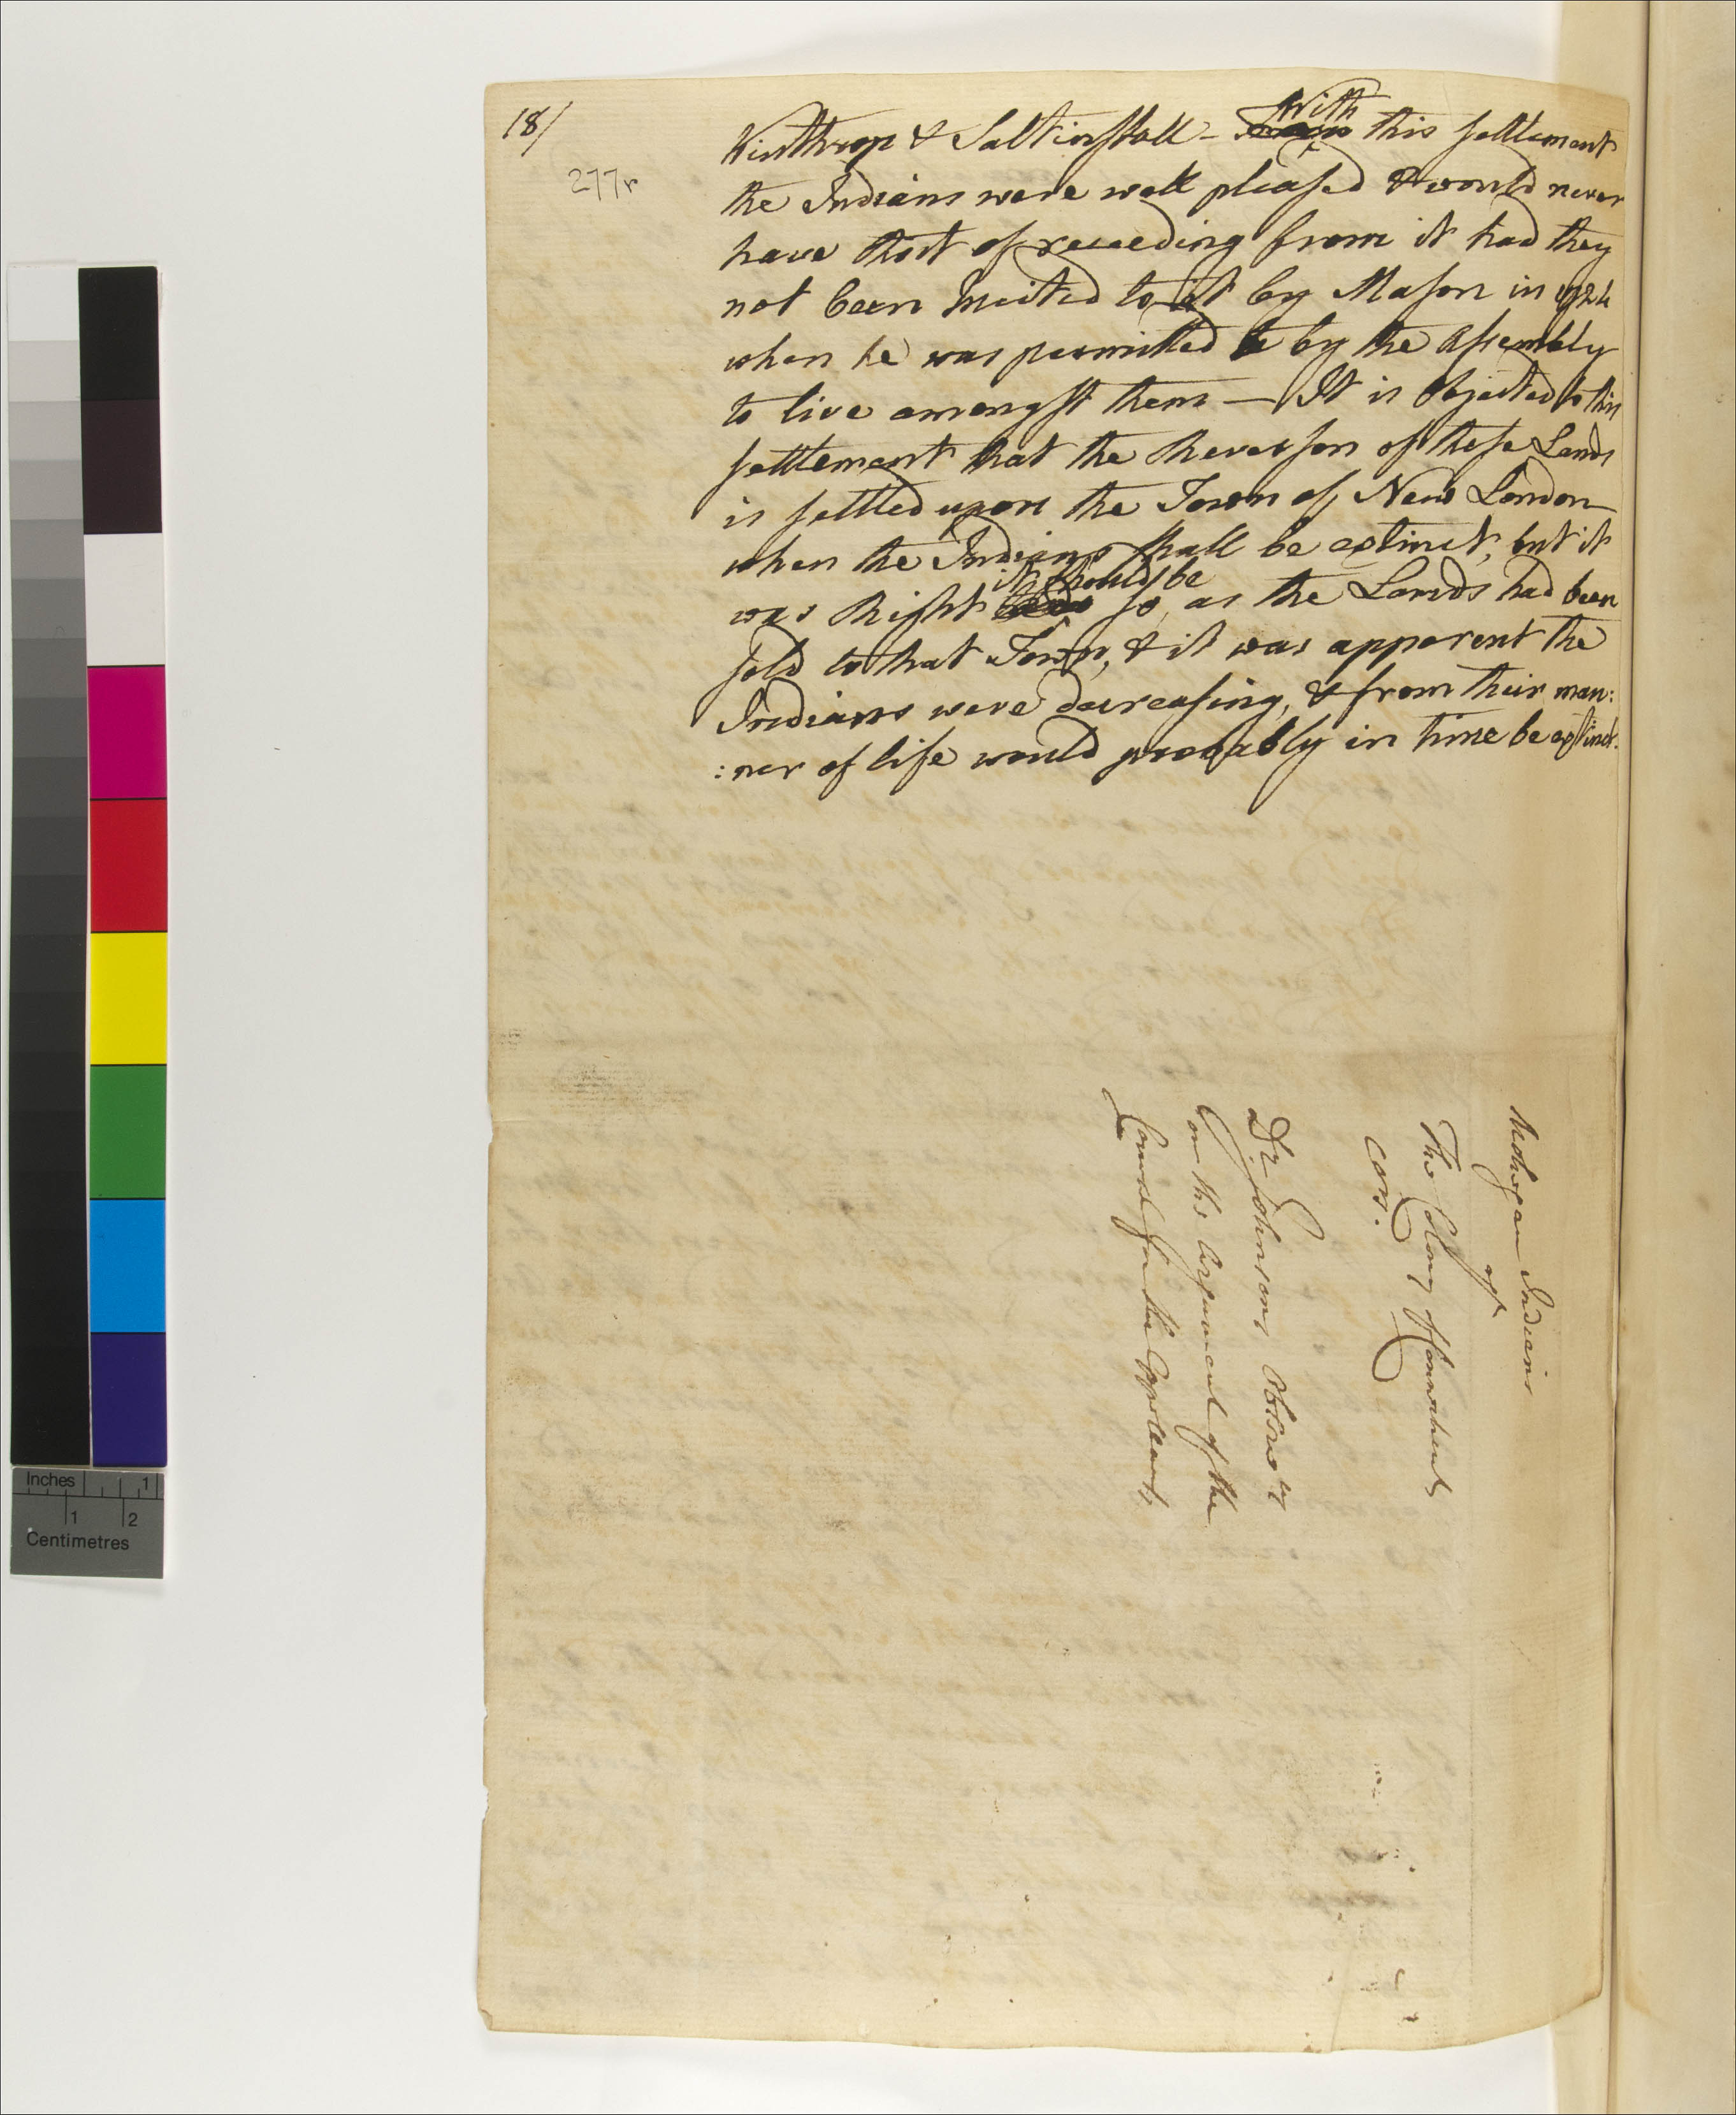 18/
277r
Winthrop & Saltinstall - With this settlement
the Indians were well pleased & would never
have tho't of receeding from it had they
not been incited to it by Mason in
when he was permitted by the Assembly
to live amongst them — It is Objected to this
settlement that the Reversion of these Lands
is settled upon the Town of New London
when the Indians shall be extinct, but it
was Right it should be so, as the Lands had been
sold to that Town, & it was apparent the
Indians were decreasing, & from their man:
:ner of life would probably in time be extinct.
Mohegan Indians
agt
The Colony of Connecticut
Cors.
Dr. Johnsons Observats
on the Argument of the
Counsel for the Appellants
Inches 1
1 2
Centimetres